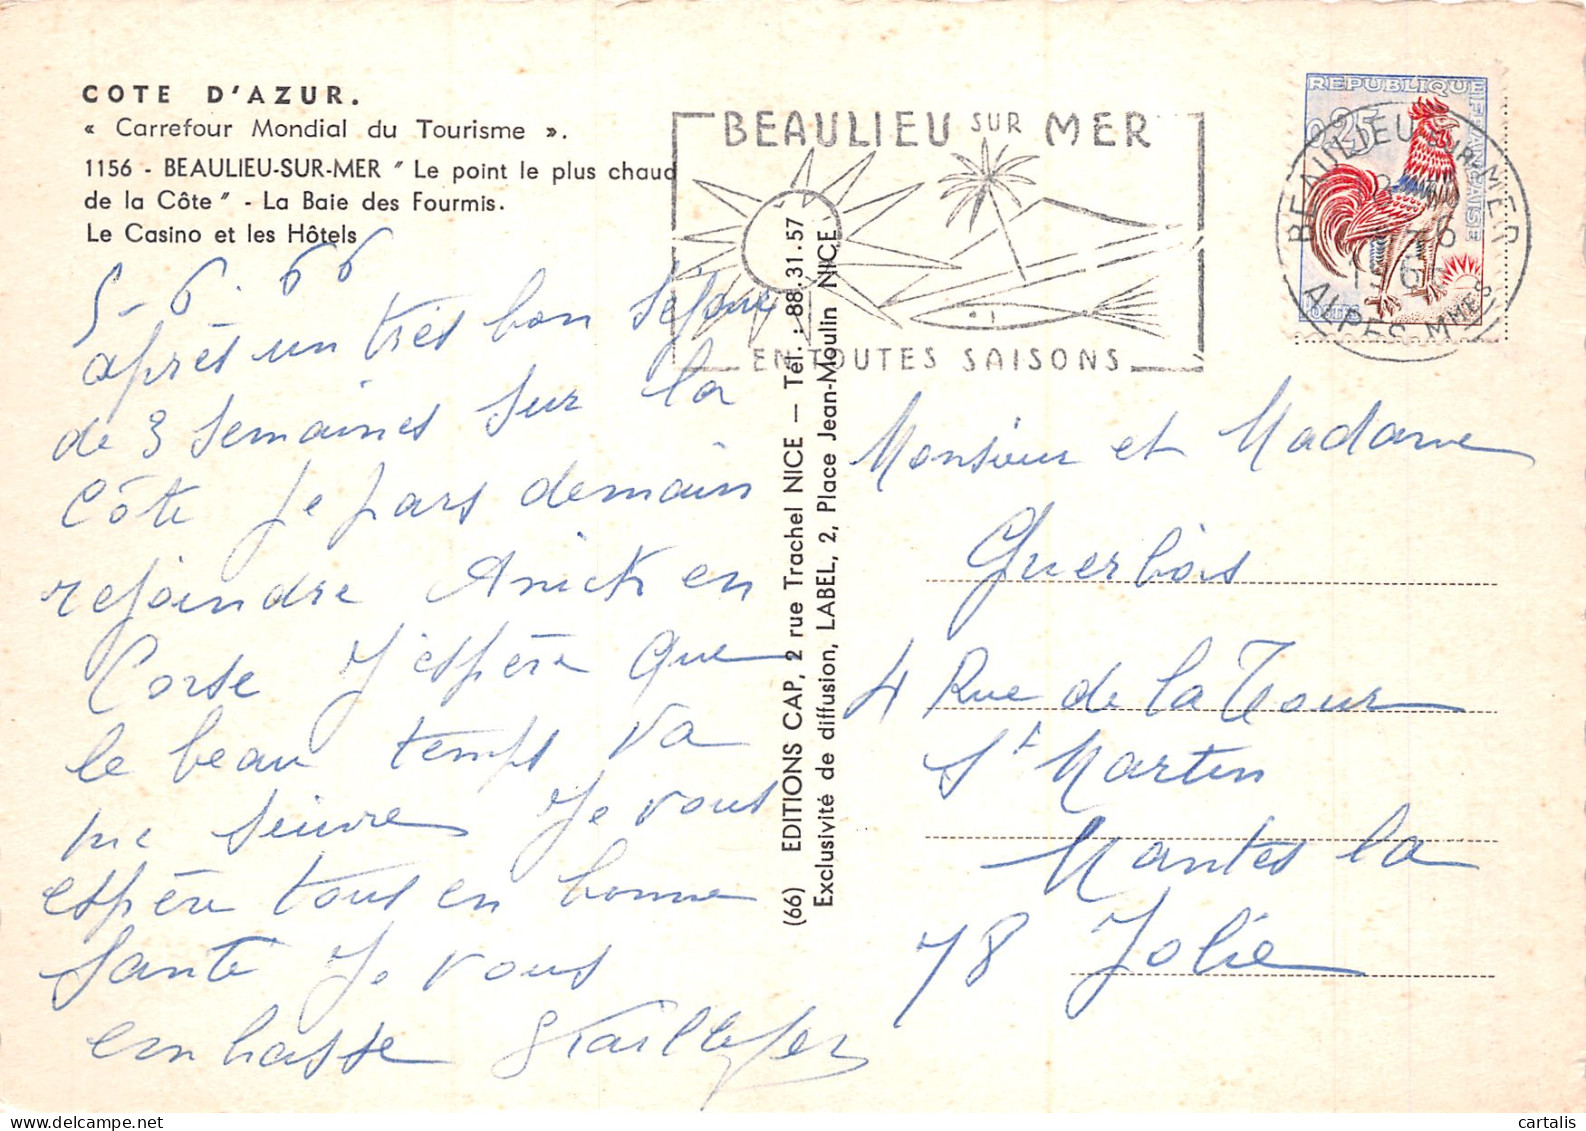 COTE D'AZUR.
« Carrefour Mondial du Tourisme ».
1156 - BEAULIEU-SUR-MER " Le point le plus chaud
de la Côte " - La Baie des Fourmis.
Le Casino et les Hôtels
5-6.66
après un très bon séjour
de 3 semaines sur la
Côte je pars demain
rejoindre Anick en
Corse J'espère que
le beau temps va
me suivre Je vous
espère tous en bonne
Santé Je vous
embrasse
(66) EDITIONS CAP, 2 rue Trachel NICE — Tél. : 88.31.57
Exclusivité de diffusion, LABEL, 2, Place Jean-Moulin NICE
BEAULIEU SUR MER
EN TOUTES SAISONS
REPUBLIQUE
FRANÇAISE
0,25
POSTES
BEAULIEU-SUR-MER
ALPES MMES
Monsieur et Madame
Guerbois
4 Rue de la Tour
St Martin
Mantes la
78 Jolie
delcampe.net
cartalis